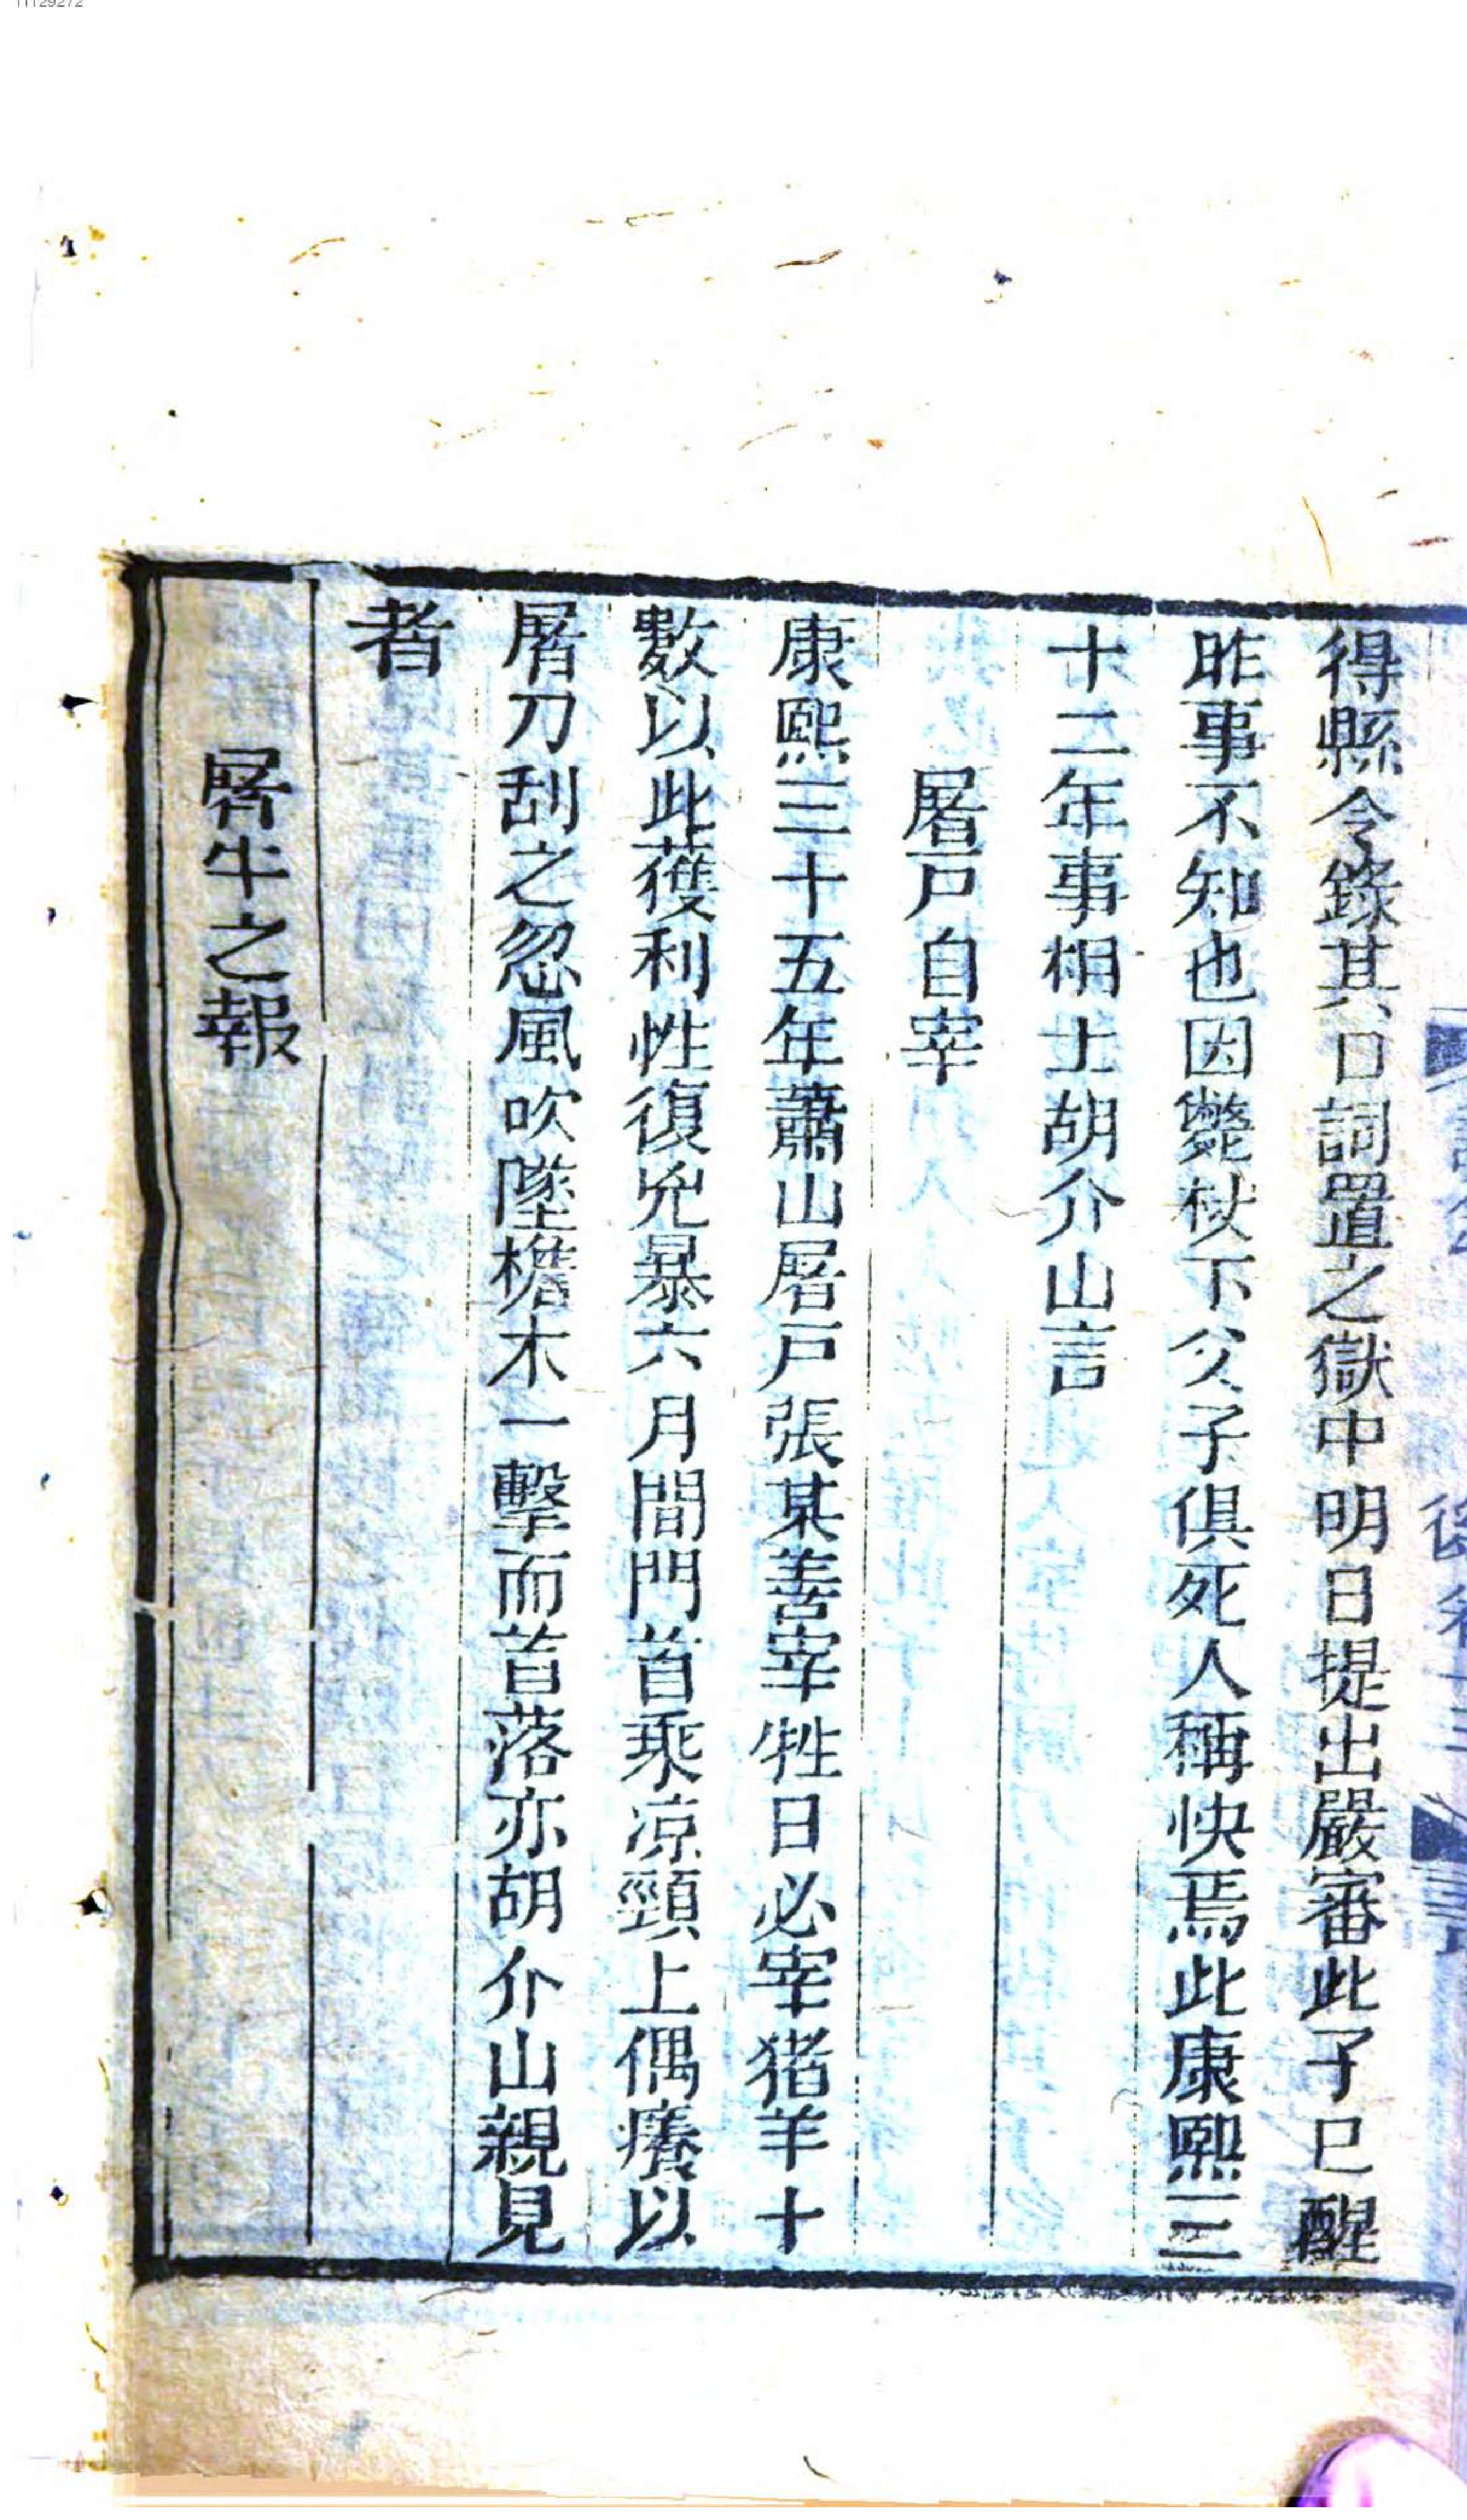 得縣令錄其口詞置之獄中明日提出嚴審此子巳醒
昨事不知也因斃杖下父子俱死人稱快焉此康熙三
十二年事相士胡介山言
屠戸自宰
康熙三十五年蕭山屠戸張某善宰牲日必宰猪羊十
數以此獲利性復兇暴六月間門首乘凉頸上偶癢以
屠刀刮之忽風吹墜檐木一擊而首落亦胡介山親見
者
屠牛之報